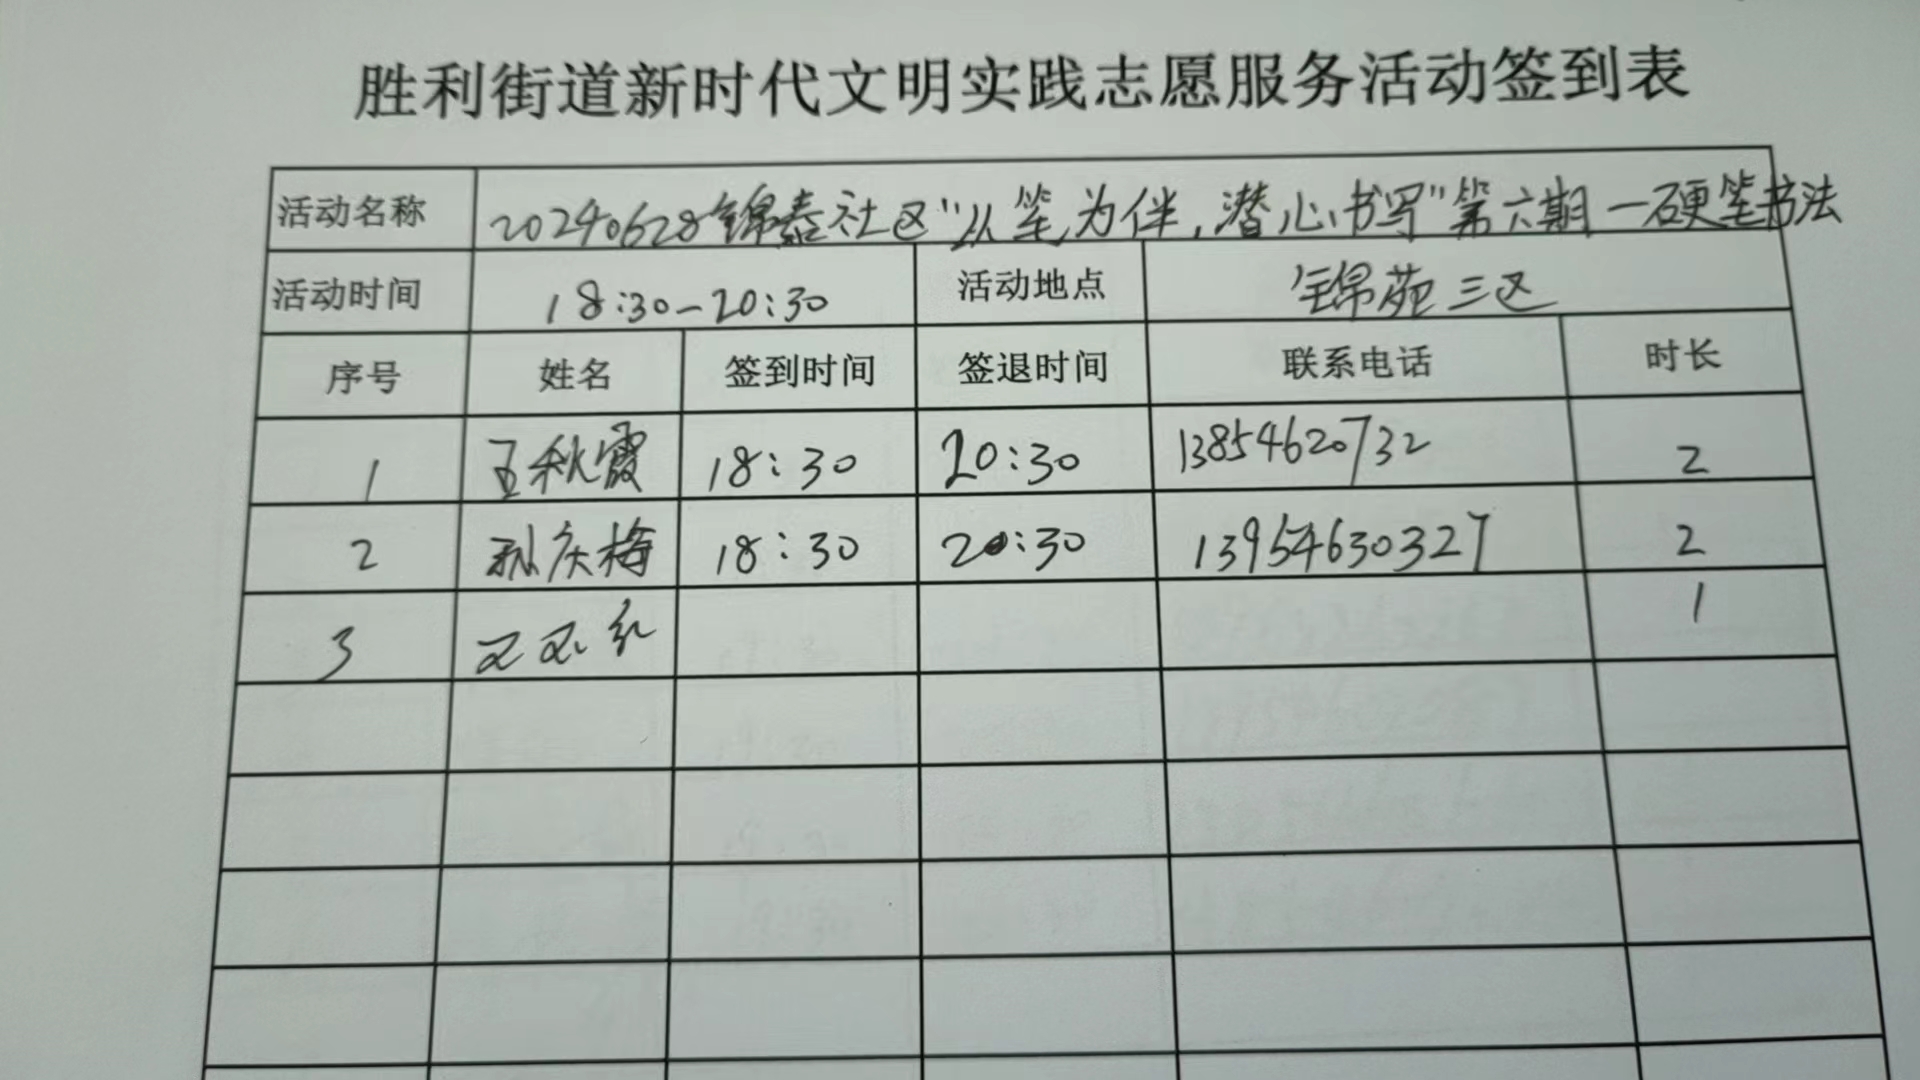 胜利街道新时代文明实践志愿服务活动签到表
活动名称 20240628锦泰社区“以笔为伴，潜心书写”第六期—硬笔书法
活动时间 18:30-20:30 活动地点 锦苑三区
序号 姓名 签到时间 签退时间 联系电话 时长
1 王秋霞 18:30 20:30 13854620732 2
2 孙庆梅 18:30 20:30 13954630327 2
3 王 红 1